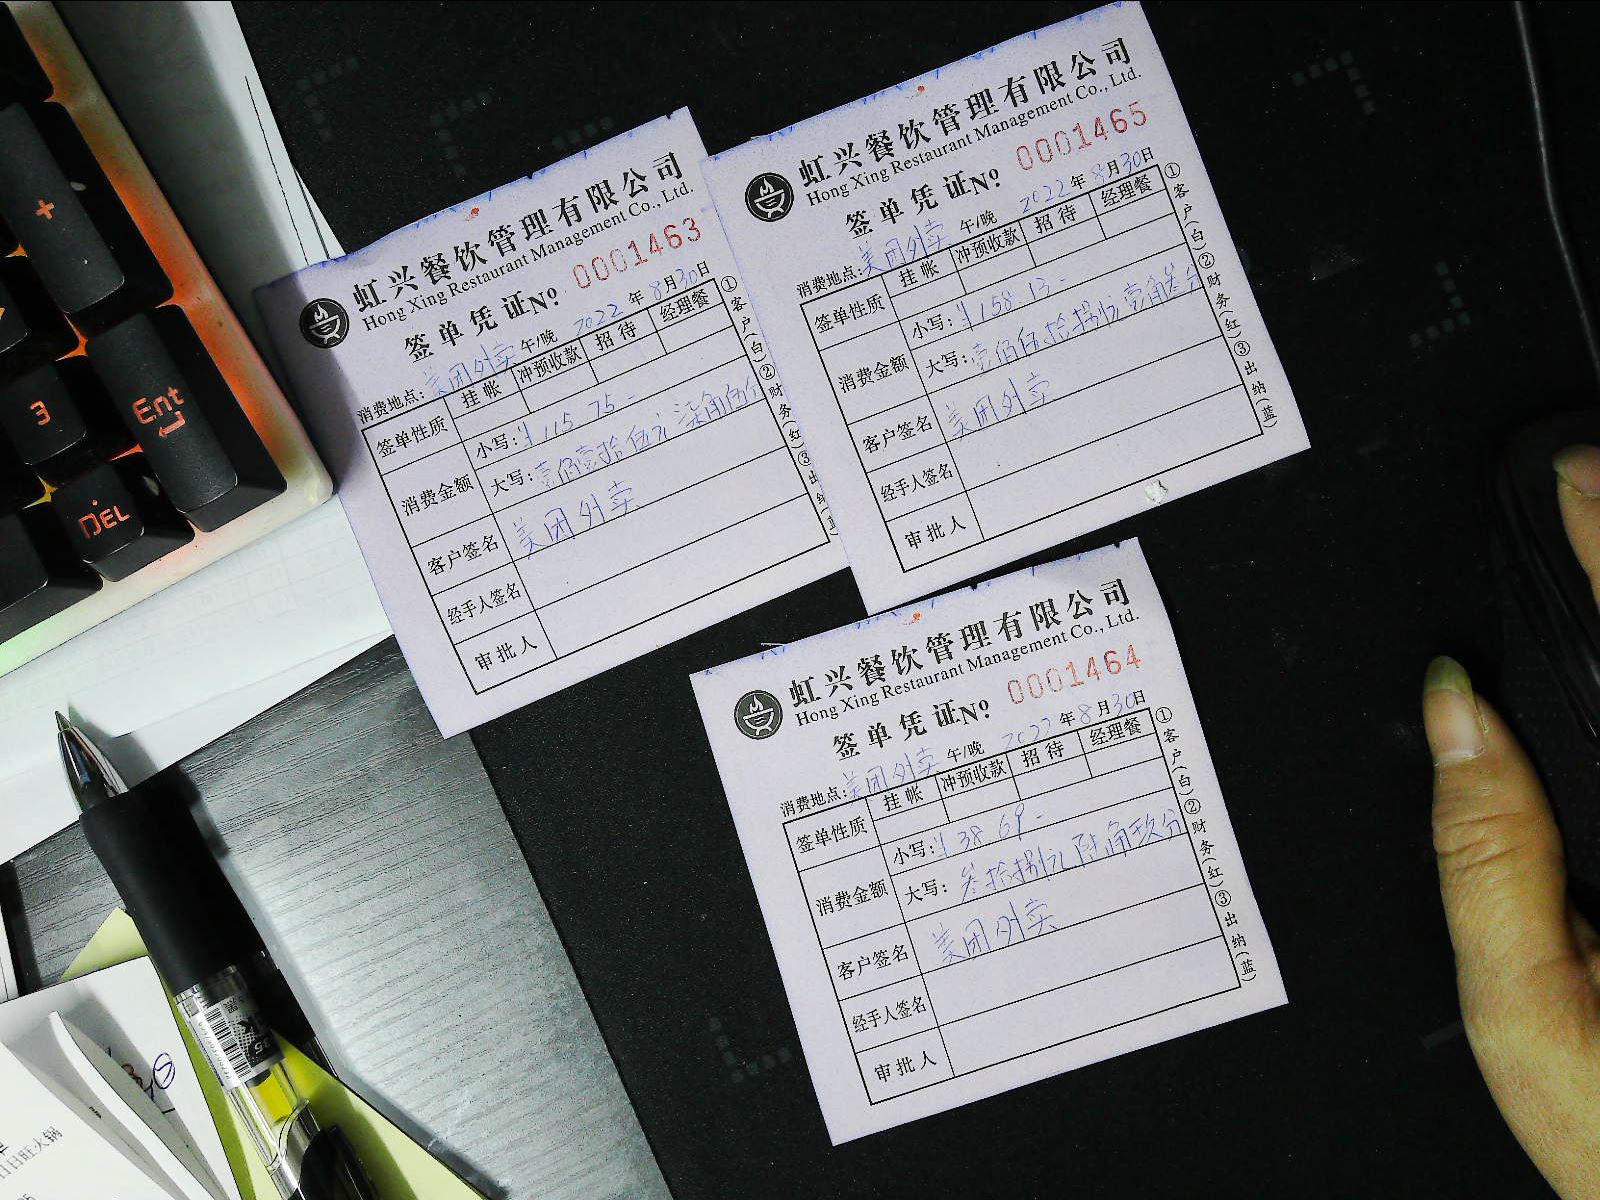 虹兴餐饮管理有限公司
Hong Xing Restaurant Management Co., Ltd.
签单凭证Nº 0001463
消费地点:美团外卖 午/晚 2022年8月30日
签单性质 挂帐 冲预收款 招待 经理餐
消费金额 小写:¥115.75-
大写:壹佰壹拾伍元柒角伍分
客户签名 美团外卖
经手人签名
审批人
①客户(白)②财务(红)③出纳(蓝)
虹兴餐饮管理有限公司
Hong Xing Restaurant Management Co., Ltd.
签单凭证Nº 0001465
消费地点:美团外卖 午/晚 2022年8月30日
签单性质 挂帐 冲预收款 招待 经理餐
消费金额 小写:¥158.13-
大写:壹佰伍拾捌元壹角叁分
客户签名 美团外卖
经手人签名
审批人
①客户(白)②财务(红)③出纳(蓝)
虹兴餐饮管理有限公司
Hong Xing Restaurant Management Co., Ltd.
签单凭证Nº 0001464
消费地点:美团外卖 午/晚 2022年8月30日
签单性质 挂帐 冲预收款 招待 经理餐
消费金额 小写:¥38.69-
大写:叁拾捌元陆角玖分
客户签名 美团外卖
经手人签名
审批人
①客户(白)②财务(红)③出纳(蓝)
+
3
Ent
DEL
日日旺火锅